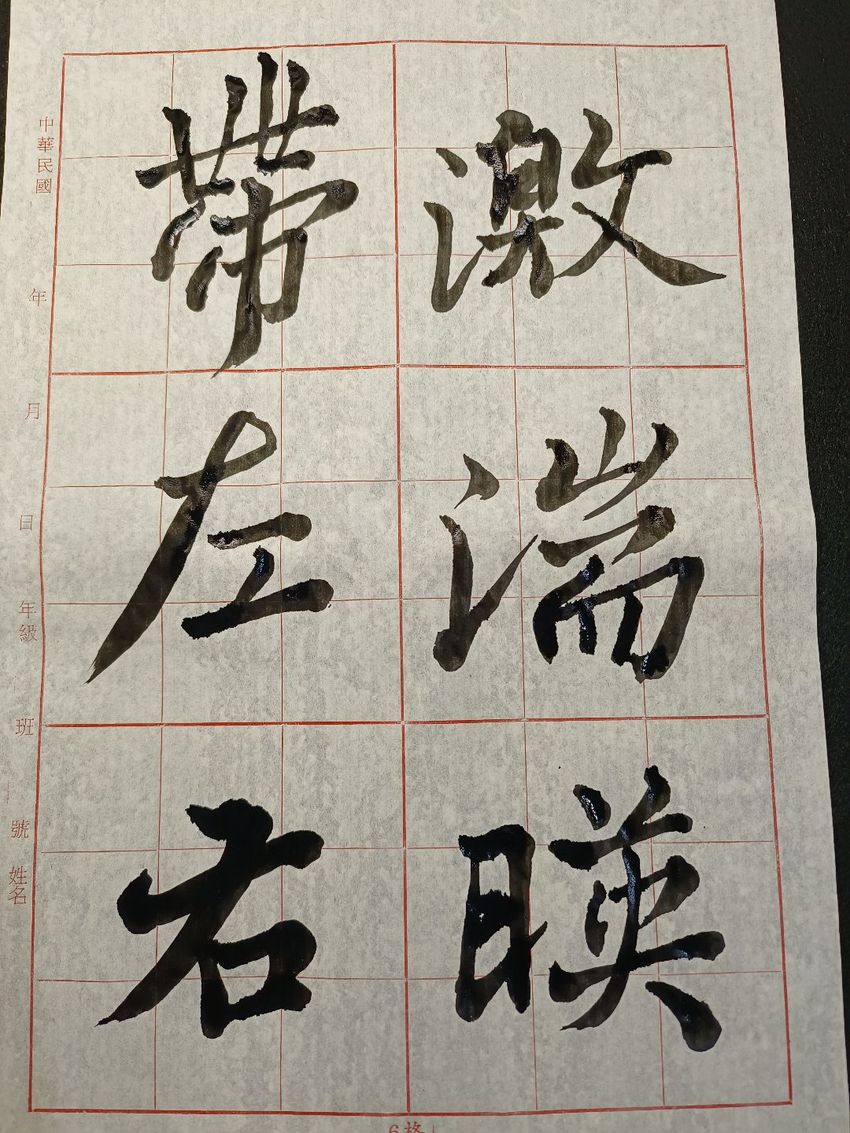 激湍暎
帶左右
中華民國 年 月 日 年級 班 號 姓名
6格